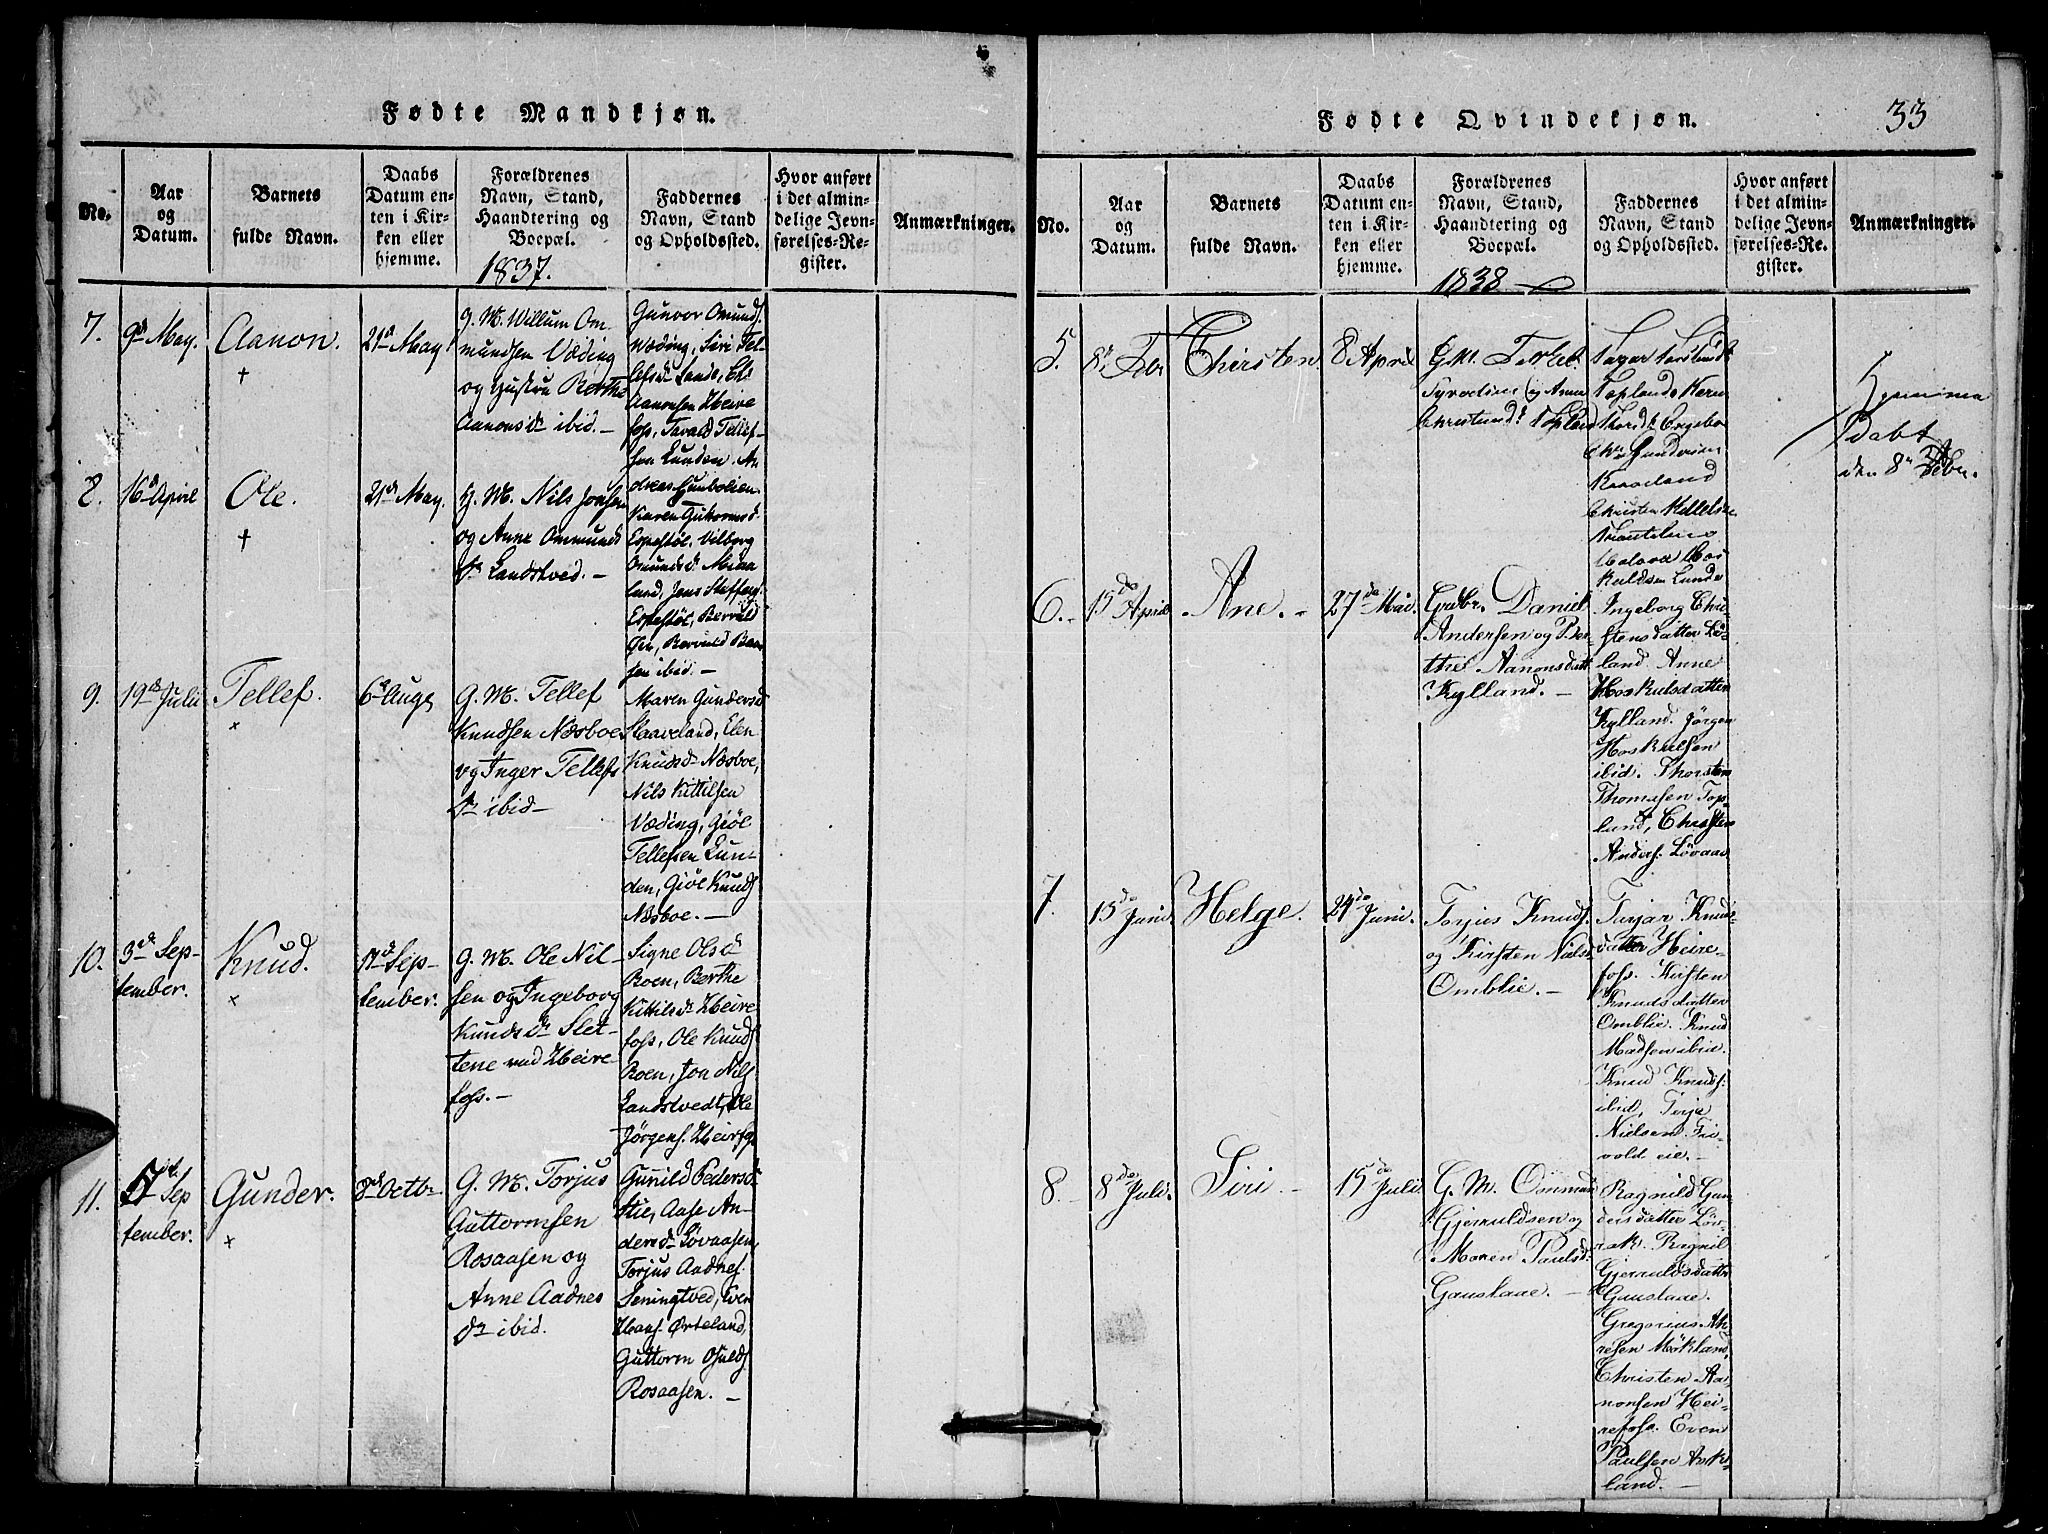 Fødte Mandkjøn.
No.
Aar
og
Datum.
Barnets
fulde Navn.
Daabs
Datum en-
ten i Kir-
ken eller
hjemme.
Forældrenes
Navn, Stand,
Haandtering og
Boepæl.
1837.
Faddernes
Navn, Stand
og Opholdssted.
Hvor anført
i det almin-
delige Jevn-
førelses-Re-
gister.
Anmærkninger.
7.
9de May.
Aanon.
†
21de May.
G. M. Willum Om-
mundsen Væding
og Hustru Berthe
Aanonsdr ibid. -
Gunvor Omunds.
Væding, Siri Tel-
lefsdr Lande,
Aanonsen Heire
foss, Tarald Tellef-
sen Lunden. An
dreas
8.
16de April
Ole.
†
21de May.
G. M. Nils Jonsen
og Anne Ommunds
dr Landstved. -
Karen Guttormsd.
Espestøl, Vilborg
Omundsdr
land, Jens Steffens.
Espestøl,
sen ibid. -
9.
19de Julii
Tellef.
×
6de Aug.
G. M. Tellef
Knudsen Næsboe
og Inger Tellefs
dr ibid -
Maren Gundersd
Skaaveland, Elen
Knudsdr Næsboe,
Nils Kittilsen
Væding, Giøl
Tellefsen Lun-
den, Giøl Knuds.
Næsboe. -
10.
3de Sep-
tember.
Knud.
×
17de Sep-
tember.
G. M. Ole Nil-
sen og Ingeborg
Knudsdr Slet-
tene ved Heire-
foss. -
Signe Olsd
Roen, Berthe
Kittilsdr Heire
foss, Ole Knuds
Roen, Jon Nils.
Landstvedt, Ole
Jørgens. Heirefos
11.
17de Sep
tember.
Gunder.
×
8de Octbr
G. M. Torjus
Guttormsen
Rosaasen og
Anne Aadnes
dr ibid.
Gunild Pedersd
Stie, Aase An-
dersdr Løvaasen,
Torjus Aadnes.
Seningtved, Even
Hans. Ørteland,
Guttorm Osulds.
Rosaasen. -
Fødte Qvindekjøn.
33
No.
Aar
og
Datum.
Barnets
fulde Navn.
Daabs
Datum en-
ten i Kir-
ken eller
hjemme.
Forældrenes
Navn, Stand,
Haandtering og
Boepæl.
1838
Faddernes
Navn, Stand
og Opholdssted.
Hvor anført
i det almin-
delige Jevn-
førelses-Re-
gister.
Anmærkninger.
5.
8de Feb
Thirsten
8 April
G. M. Terkel
og Anne
Christensd. Topland
Topland. Karen
Thorsd.
Gundersen
Kaaveland
Christen Kittelsen
Lunde
Hjemme
døbt
den 8de
6. -
15de April
Ane. -
27de Mai.
Grdbr. Daniel
Andersen og Ber-
thel Aanonsdatt.
Kylland. -
Ingeborg Chri-
stensdatter Lö-
land. Anne
Hoskulsdatter
Kylland. Jörgen
Hoskulsen
ibid. Thorsten
Thomasen Top-
land, Christen
Anders. Lövaas
7.
15de Junii.
Helge.
24de Junii.
Torjus Knuds.
og Kirsten Nielsd.
Omblie. -
Torjær Knuds-
datter Heire-
foss. Kirsten
Knudsdatter
Omblie. Knud
Madsen ibid.
Knud Knuds.
ibid, Terje
Nielsen Tri-
vold eie. -
8
8de Juli.
Siri. -
15de Juli.
G. M. Ommun
Gjeruldsen og
Maren Paulsd.
Gauslaae. -
Ragnild Gun-
dersdatter Löv-
rak. Ragnil
Gjeruldsdatter
Gauslaae.
Gregorius An-
resen Mörkland,
Christen Aa-
nonsen Hei-
refoss. Even
Paulsen Ask-
land. -